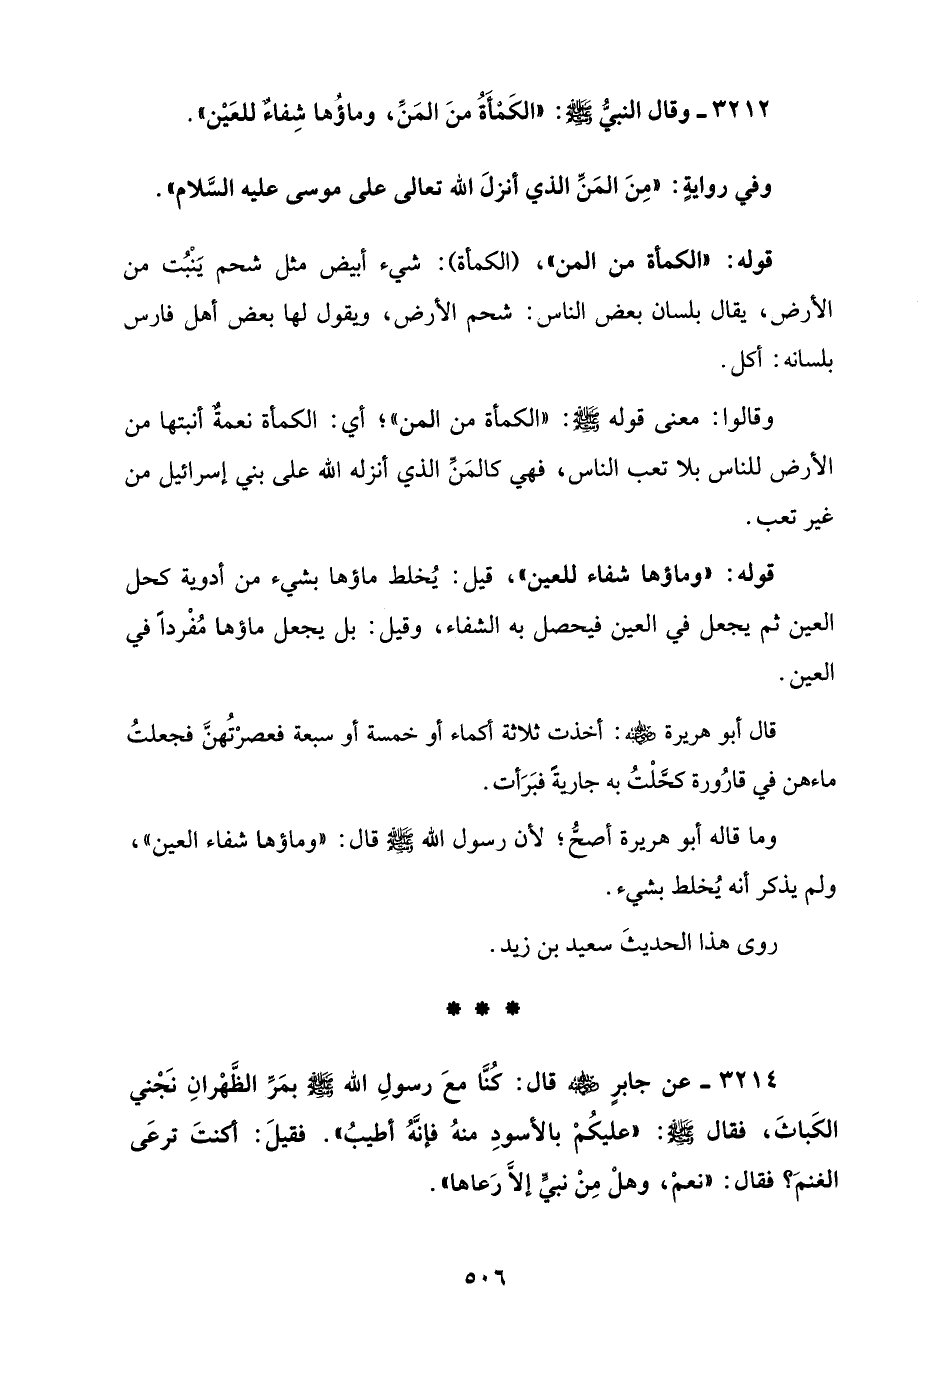 ٣٢١٢ ـ وقال النبيُّ ﷺ: «الكَمْأَةُ منَ المَنِّ، وماؤُها شِفاءٌ للعَيْن».
وفي روايةٍ: «مِنَ المَنِّ الذي أنزلَ الله تعالى على موسى عليه السَّلام».
قوله: «الكمأة من المن»، (الكمأة): شيء أبيض مثل شحم يَنْبُت من
الأرض، يقال بلسان بعض الناس: شحم الأرض، ويقول لها بعض أهل فارس
بلسانه: أكل.
وقالوا: معنى قوله ﷺ: «الكمأة من المن»؛ أي: الكمأة نعمةٌ أنبتها من
الأرض للناس بلا تعب الناس، فهي كالمَنِّ الذي أنزله الله على بني إسرائيل من
غير تعب.
قوله: «وماؤها شفاء للعين»، قيل: يُخلط ماؤها بشيء من أدوية كحل
العين ثم يجعل في العين فيحصل به الشفاء، وقيل: بل يجعل ماؤها مُفْرداً في
العين.
قال أبو هريرة رضي الله عنه: أخذت ثلاثة أكماء أو خمسة أو سبعة فعصرْتُهنَّ فجعلتُ
ماءهن في قارُورة كحَّلْتُ به جاريةً فبَرَأت.
وما قاله أبو هريرة أصحُّ؛ لأن رسول الله ﷺ قال: «وماؤها شفاء العين»،
ولم يذكر أنه يُخلط بشيء.
روى هذا الحديثَ سعيد بن زيد.
* * *
٣٢١٤ ـ عن جابرٍ رضي الله عنه قال: كُنَّا معَ رسولِ الله ﷺ بمَرِّ الظَّهْرانِ نَجْني
الكَباثَ، فقال ﷺ: «عليكُمْ بالأسودِ منهُ فإنَّهُ أطيبُ». فقيلَ: أكنتَ ترعَى
الغنمَ؟ فقال: «نعمْ، وهلْ مِنْ نبيٍّ إلاَّ رَعاها».
٥٠٦